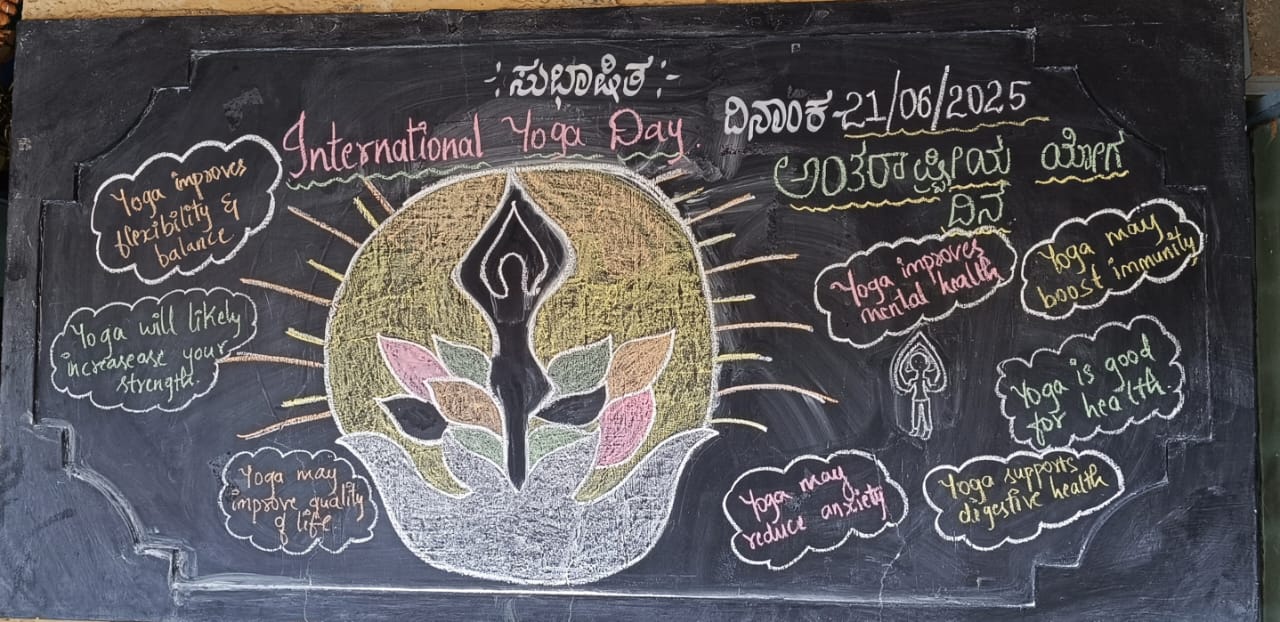 -: ಸುಭಾಷಿತ :-
International Yoga Day.
ದಿನಾಂಕ-21/06/2025
ಅಂತರಾಷ್ಟ್ರೀಯ ಯೋಗ
ದಿನ
Yoga improves
flexibility &
balance
Yoga will likely
increasease your
strength.
Yoga may
improve quality
of life.
Yoga improves
mental health
Yoga may
boost immunity
Yoga is good
for health.
Yoga may
reduce anxiety
Yoga supports
digestive health